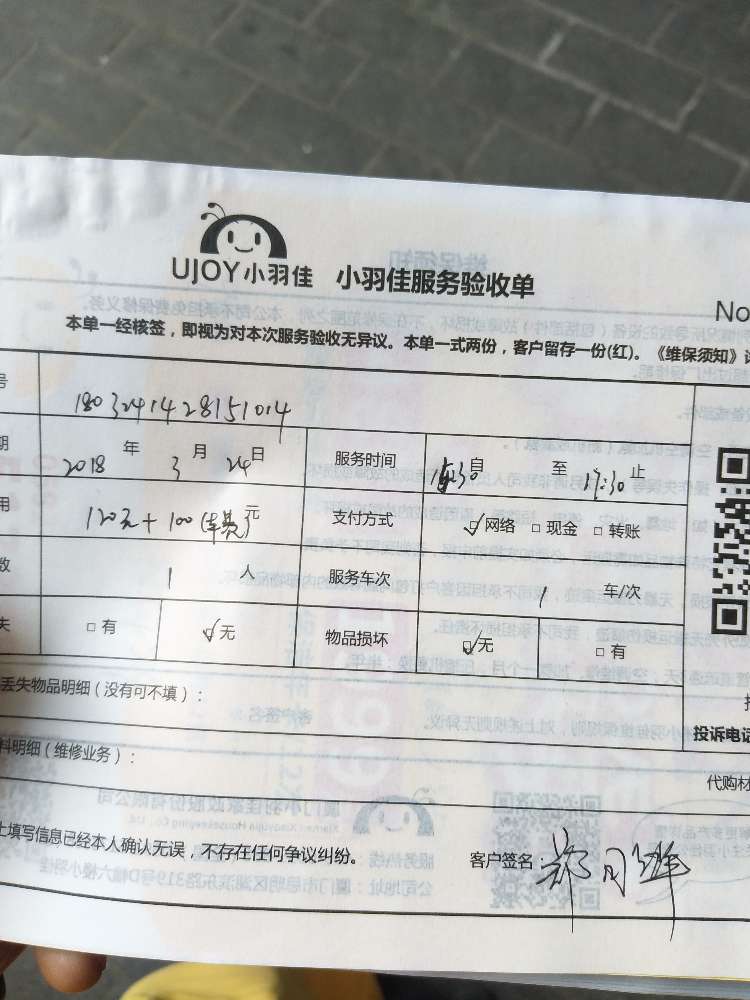 UJOY小羽佳 小羽佳服务验收单
No
本单一经核签，即视为对本次服务验收无异议。本单一式两份，客户留存一份(红)。《维保须知》
号 1803241428151014
期 2018 年 3 月 24 日 服务时间 自 至 17:30 止
用 120元+100(车费)元 支付方式 ☑网络 □现金 □转账
数 1 人 服务车次 1 车/次
失 □有 ☑无 物品损坏 ☑无 □有
丢失物品明细（没有可不填）：
投诉电话
料明细（维修业务）：
代购材
上填写信息已经本人确认无误，不存在任何争议纠纷。 客户签名：